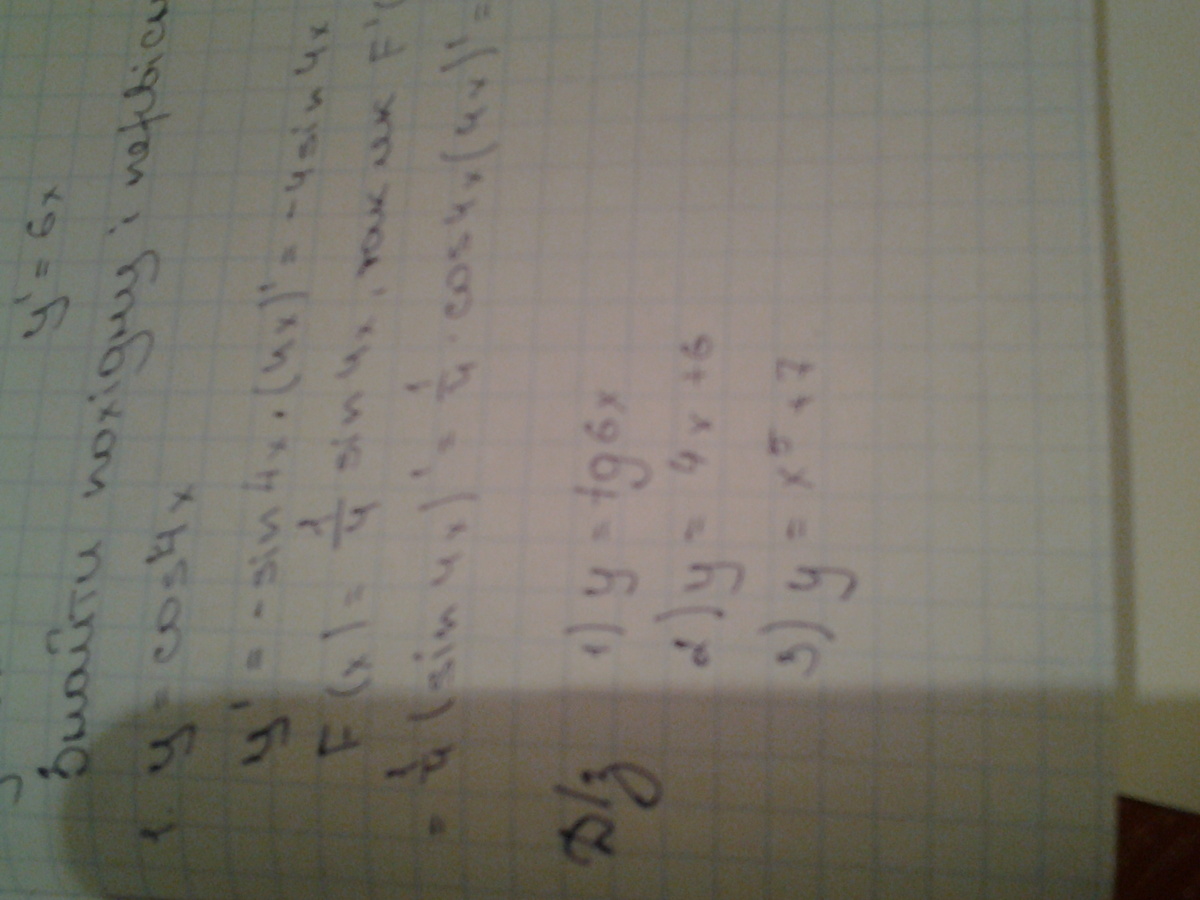 y' = 6x
Знайти похідну і первісн
1. y = cos4x
y' = -sin4x·(4x)' = -4sin4x
F(x) = 1/4 sin4x, так як F'(
= 1/4(sin4x)' = 1/4·cos4x(4x)' =
Д/з 1) y = tg6x
2) y = 4x+6
3) y = x⁵+7